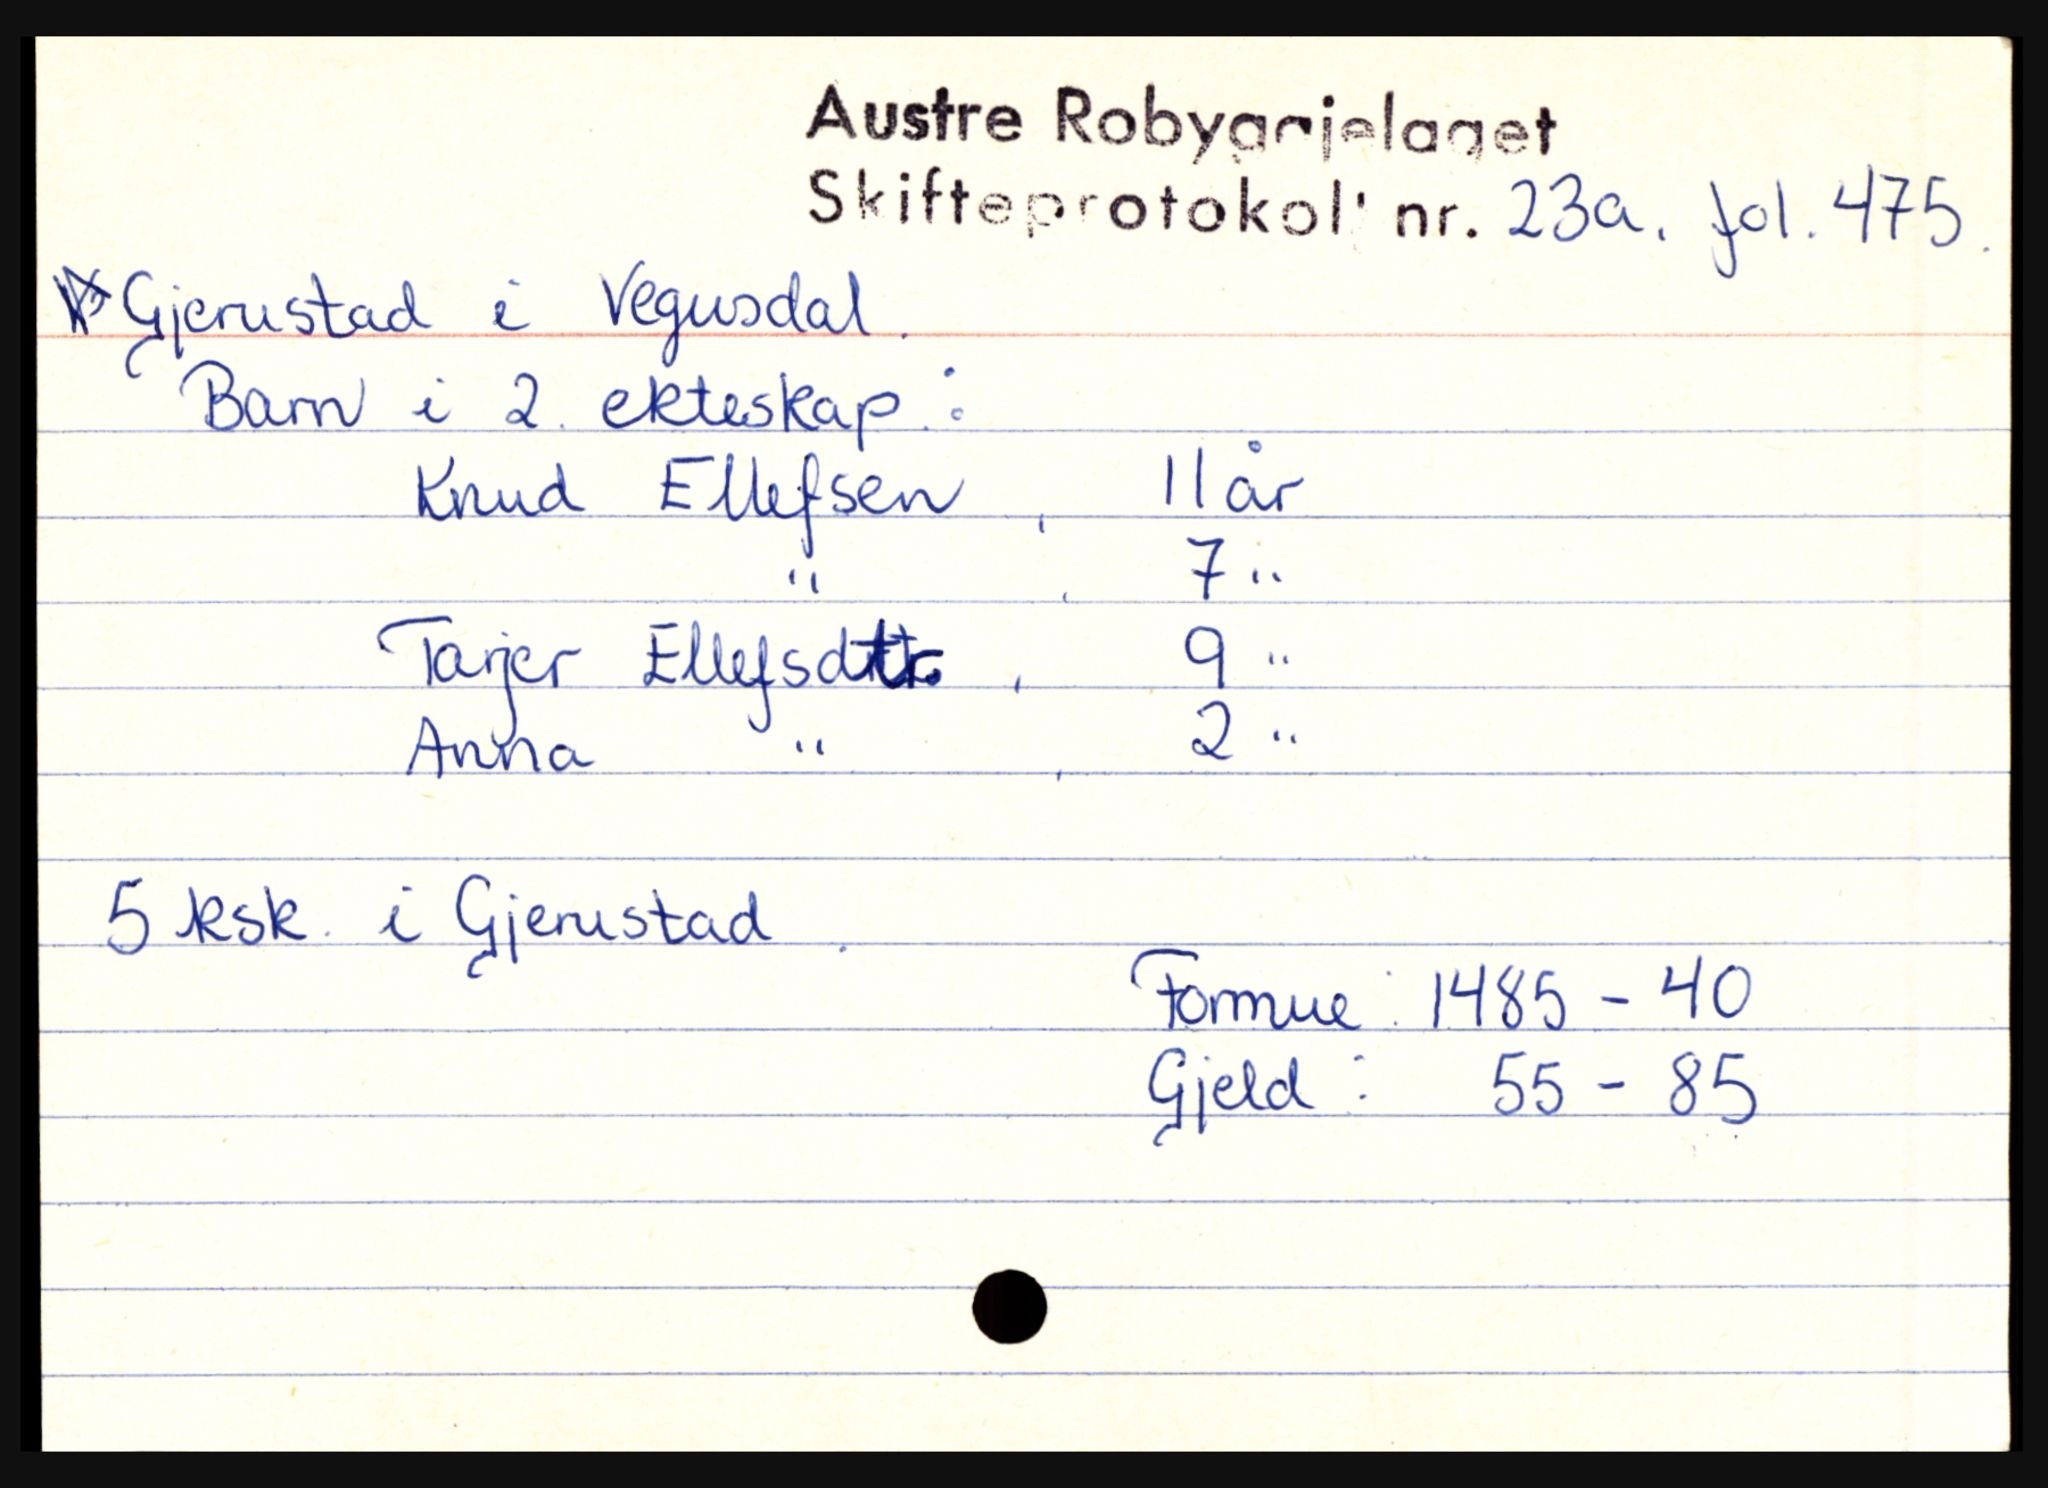 Austre Robygjelaget
Skifteprotokoll nr. 23a. fol. 475.
Gjerustad i Vegusdal.
Barn i 2. ekteskap:
Knud Ellefsen, 11 år
" , 7 "
Tarjer Ellefsdtr., 9 "
Anna " , 2 "
5 ksk. i Gjerustad.
Formue: 1485 - 40
Gjeld: 55 - 85